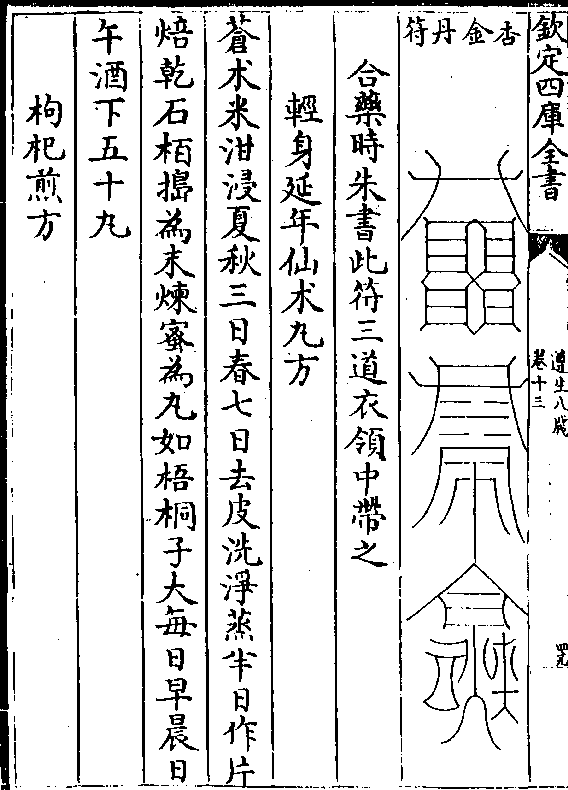 欽定四庫全書
遵生八牋
卷十三
杏金丹符
合藥時朱書此符三道衣領中帶之
輕身延年仙术丸方
蒼术米泔浸夏秋三日春七日去皮洗淨蒸半日作片
焙乾石栢搗為末煉蜜為丸如梧桐子大每日早晨日
午酒下五十丸
枸杞煎方